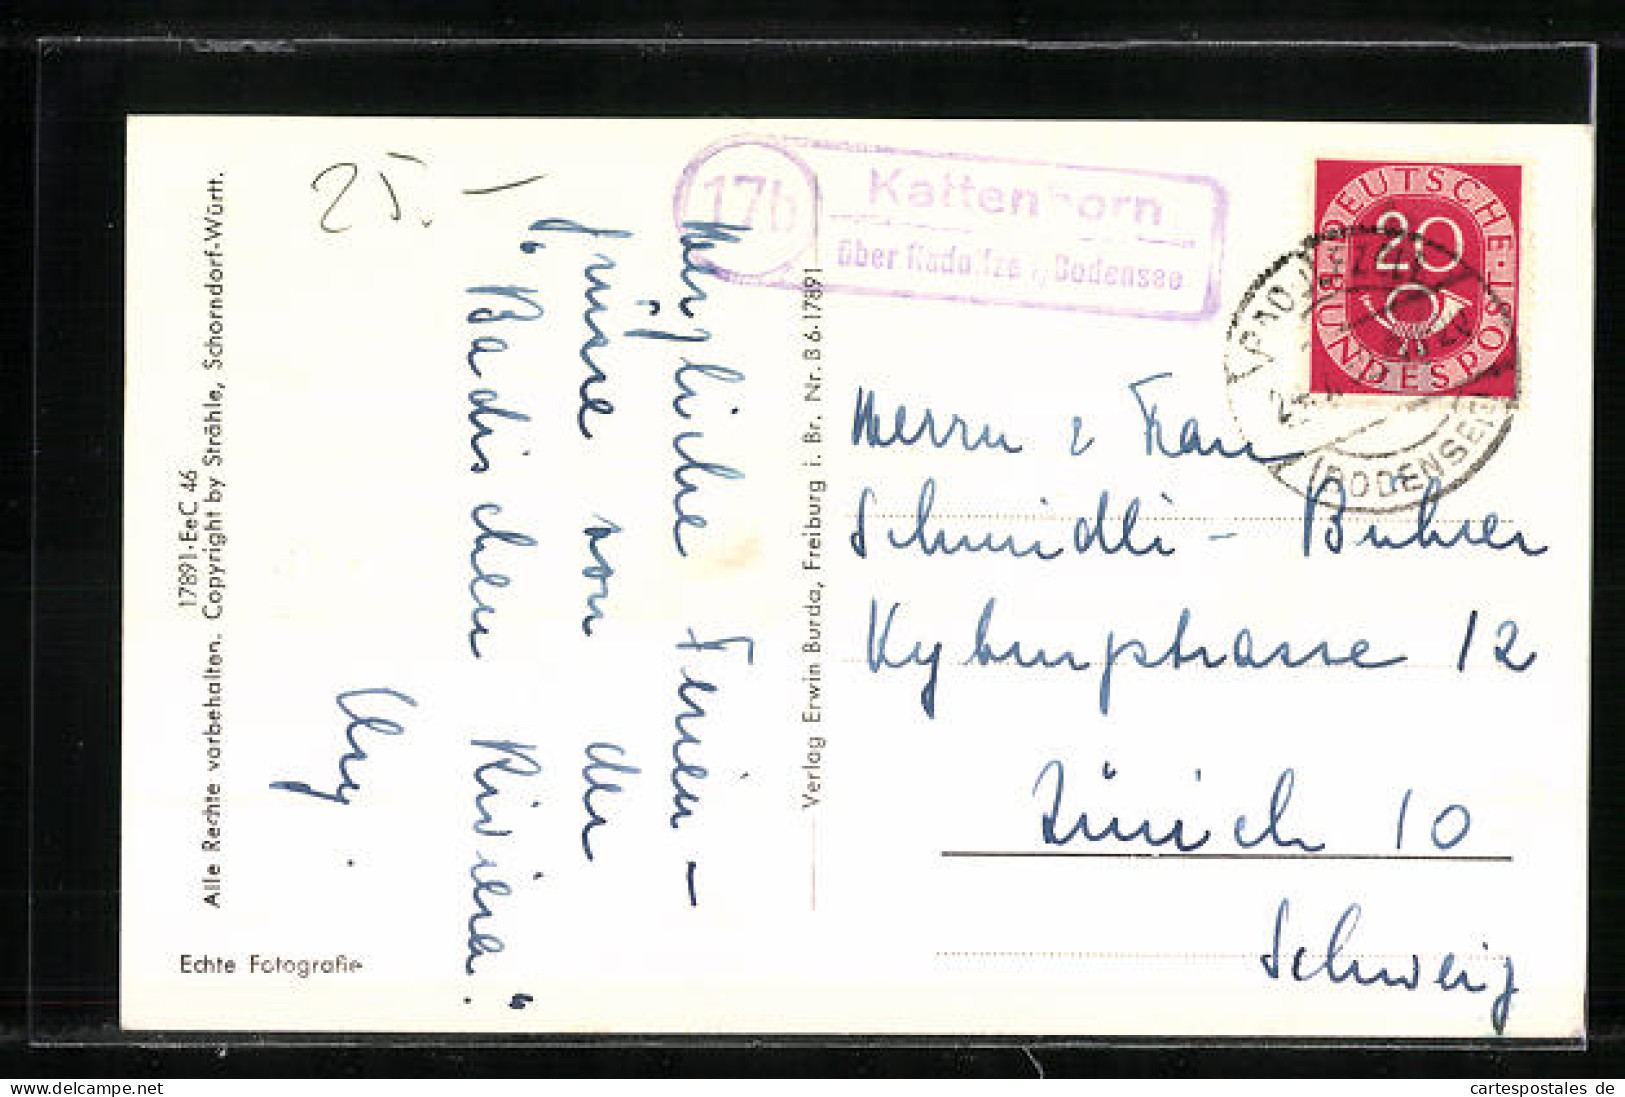 25.
17b
Kattenhorn
über Radolfzell/Bodensee
DEUTSCHE BUNDESPOST
20
(BODENSEE)
Herzliche Ferien-
grüsse von der
„Badischen Riviera."
Herrn & Frau
Schmidli - Buhrer
Kyburgstrasse 12
Zürich 10
Schweiz
Verlag Erwin Burda, Freiburg i. Br. Nr. B 6-17891
17891-EeC 46
Alle Rechte vorbehalten. Copyright by Strähle, Schorndorf-Württ.
Echte Fotografie
cartespostales de